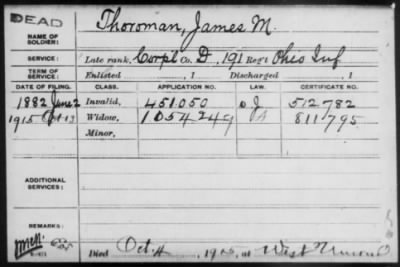 DEAD
NAME OF SOLDIER: Thoroman, James M.
SERVICE: Late rank, Corp'l Co. D, 191 Reg't Ohio Inf
TERM OF SERVICE: Enlisted , 1 Discharged , 1
DATE OF FILING. CLASS. APPLICATION NO. LAW. CERTIFICATE NO.
1882 June 2 Invalid, 451.050 J 512.782
1915 Oct-13 Widow, 1054249 811795
Minor,
ADDITIONAL SERVICES:
REMARKS:
Died Oct 4 19 at West Union O